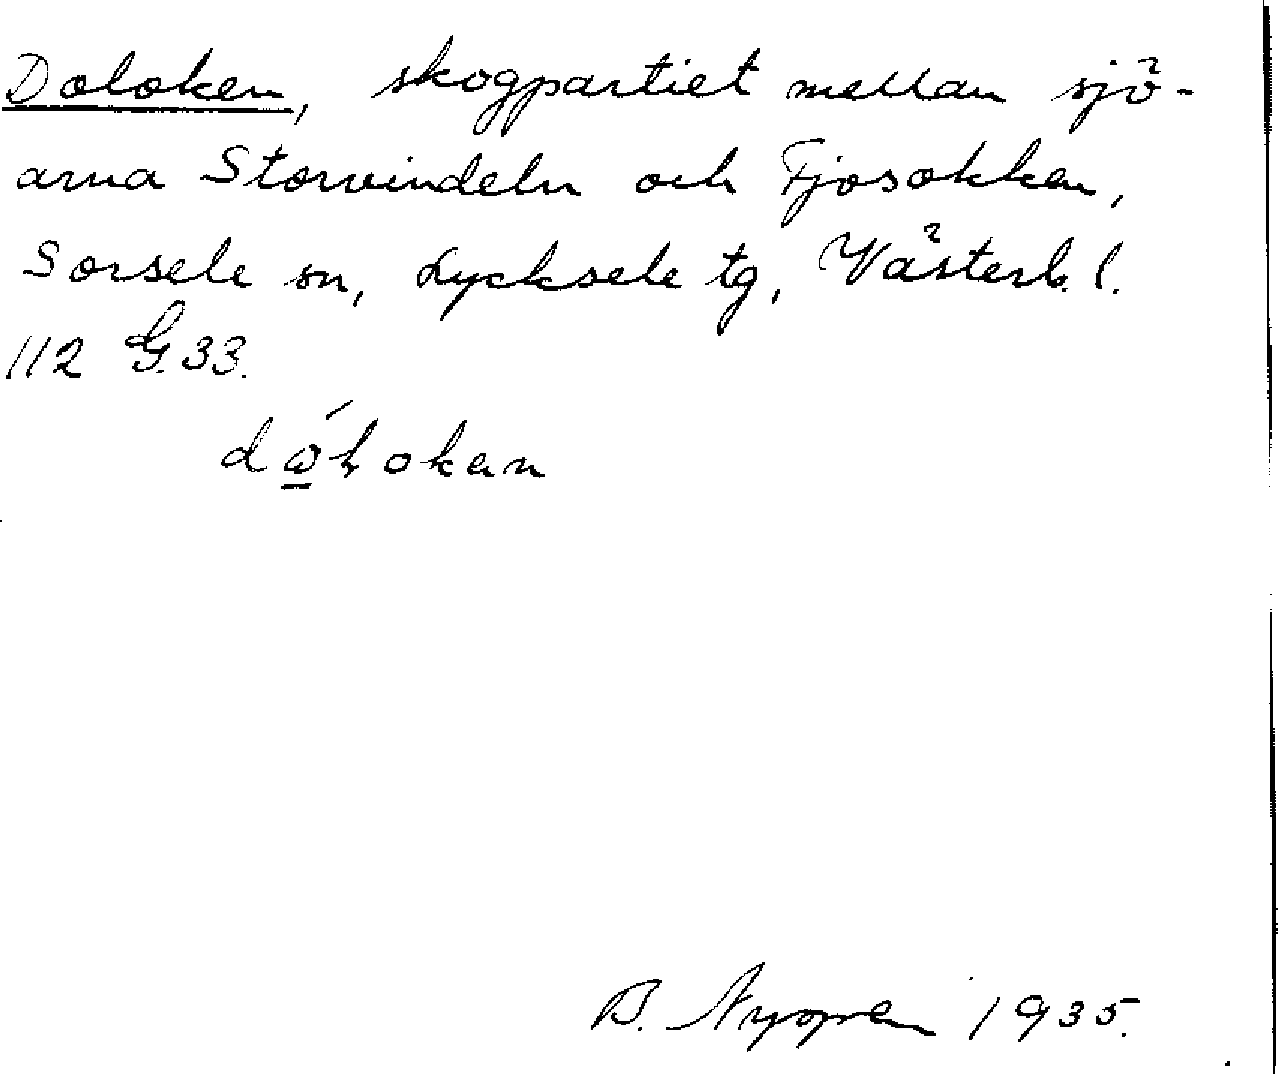 Doloken, skogpartiet mellan sjö-
arna Storvindeln och Fjosokken,
Sorsele sn, Lycksele tg, Västerb. l.
112 G. 33.
B. 1935.